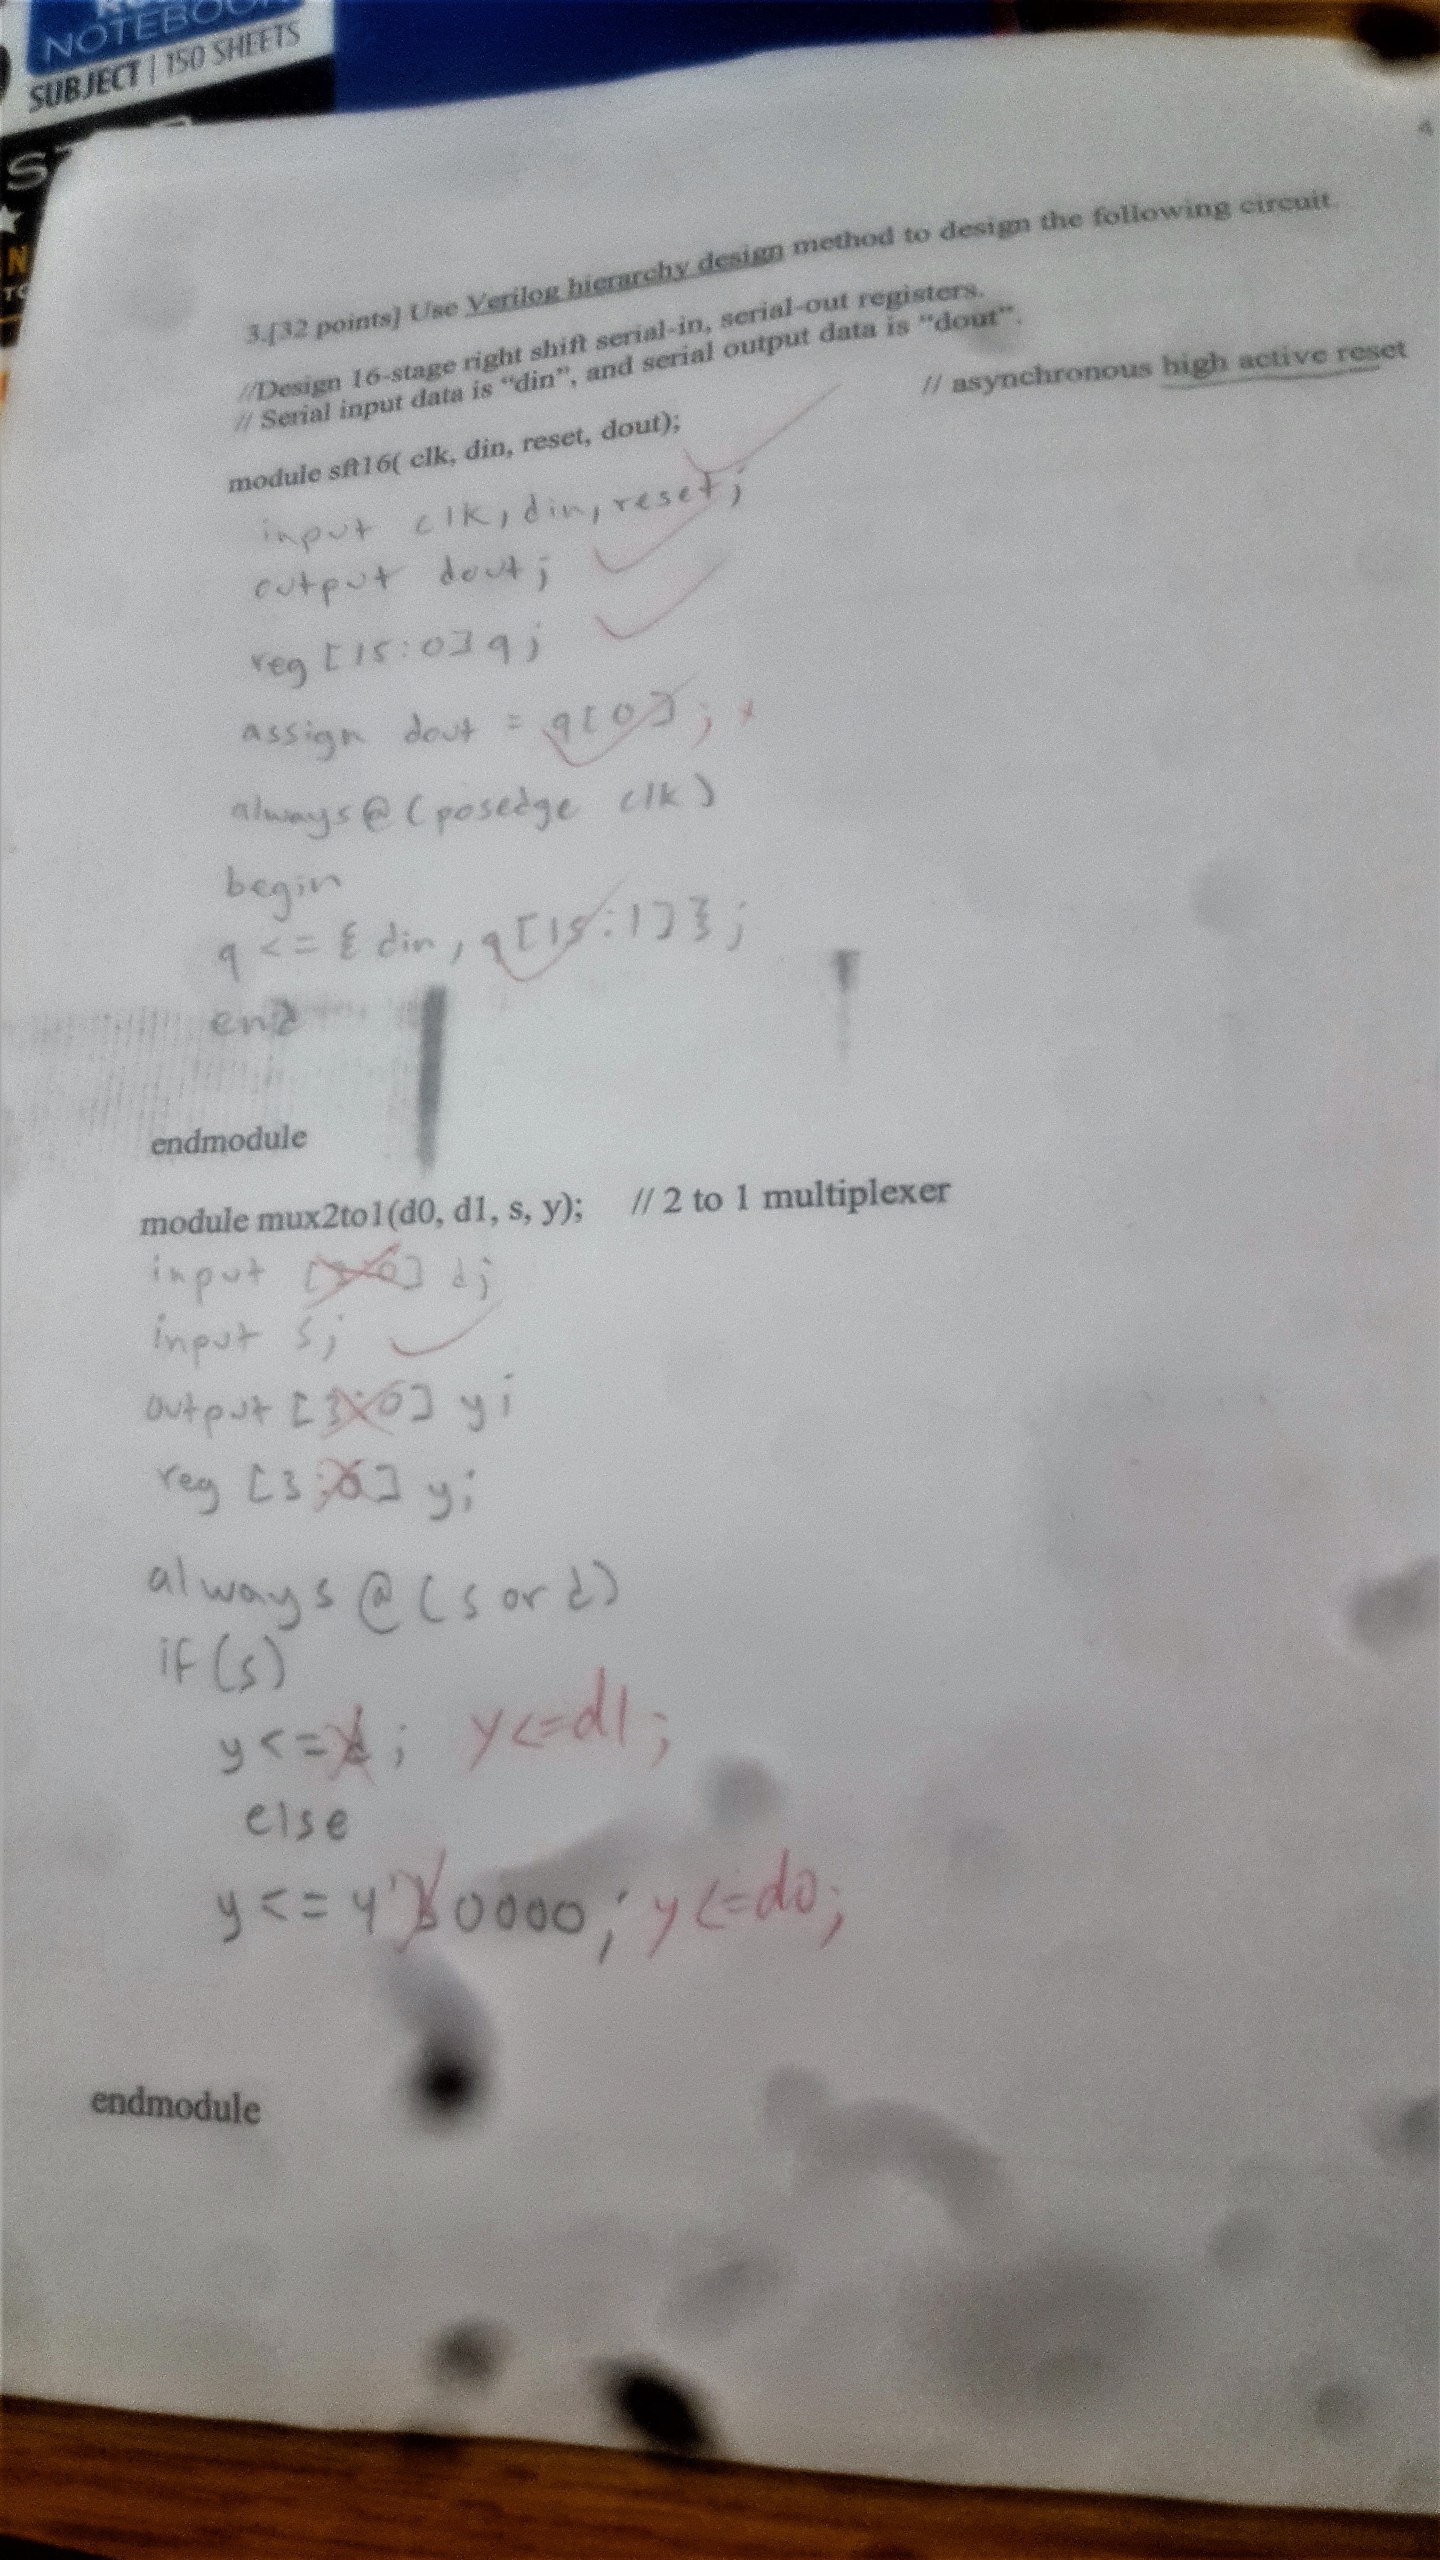 NOTEBOOK
SUBJECT | 150 SHEETS
4
3.[32 points] Use Verilog hierarchy design method to design the following circuit.
//Design 16-stage right shift serial-in, serial-out registers.
// Serial input data is “din”, and serial output data is “dout”.
module sft16( clk, din, reset, dout); // asynchronous high active reset
input clk, din, reset;
output dout;
reg [15:0] q;
assign dout = q[0];
always@(posedge clk)
begin
q <= { din, q[15:1]};
end
endmodule
module mux2to1(d0, d1, s, y); // 2 to 1 multiplexer
input [3:0] d;
input s;
output [3:0] y;
reg [3:0] y;
always @ (s or d)
if (s)
y <= d; y<=d1;
else
y <= 4'b0000; y<=d0;
endmodule